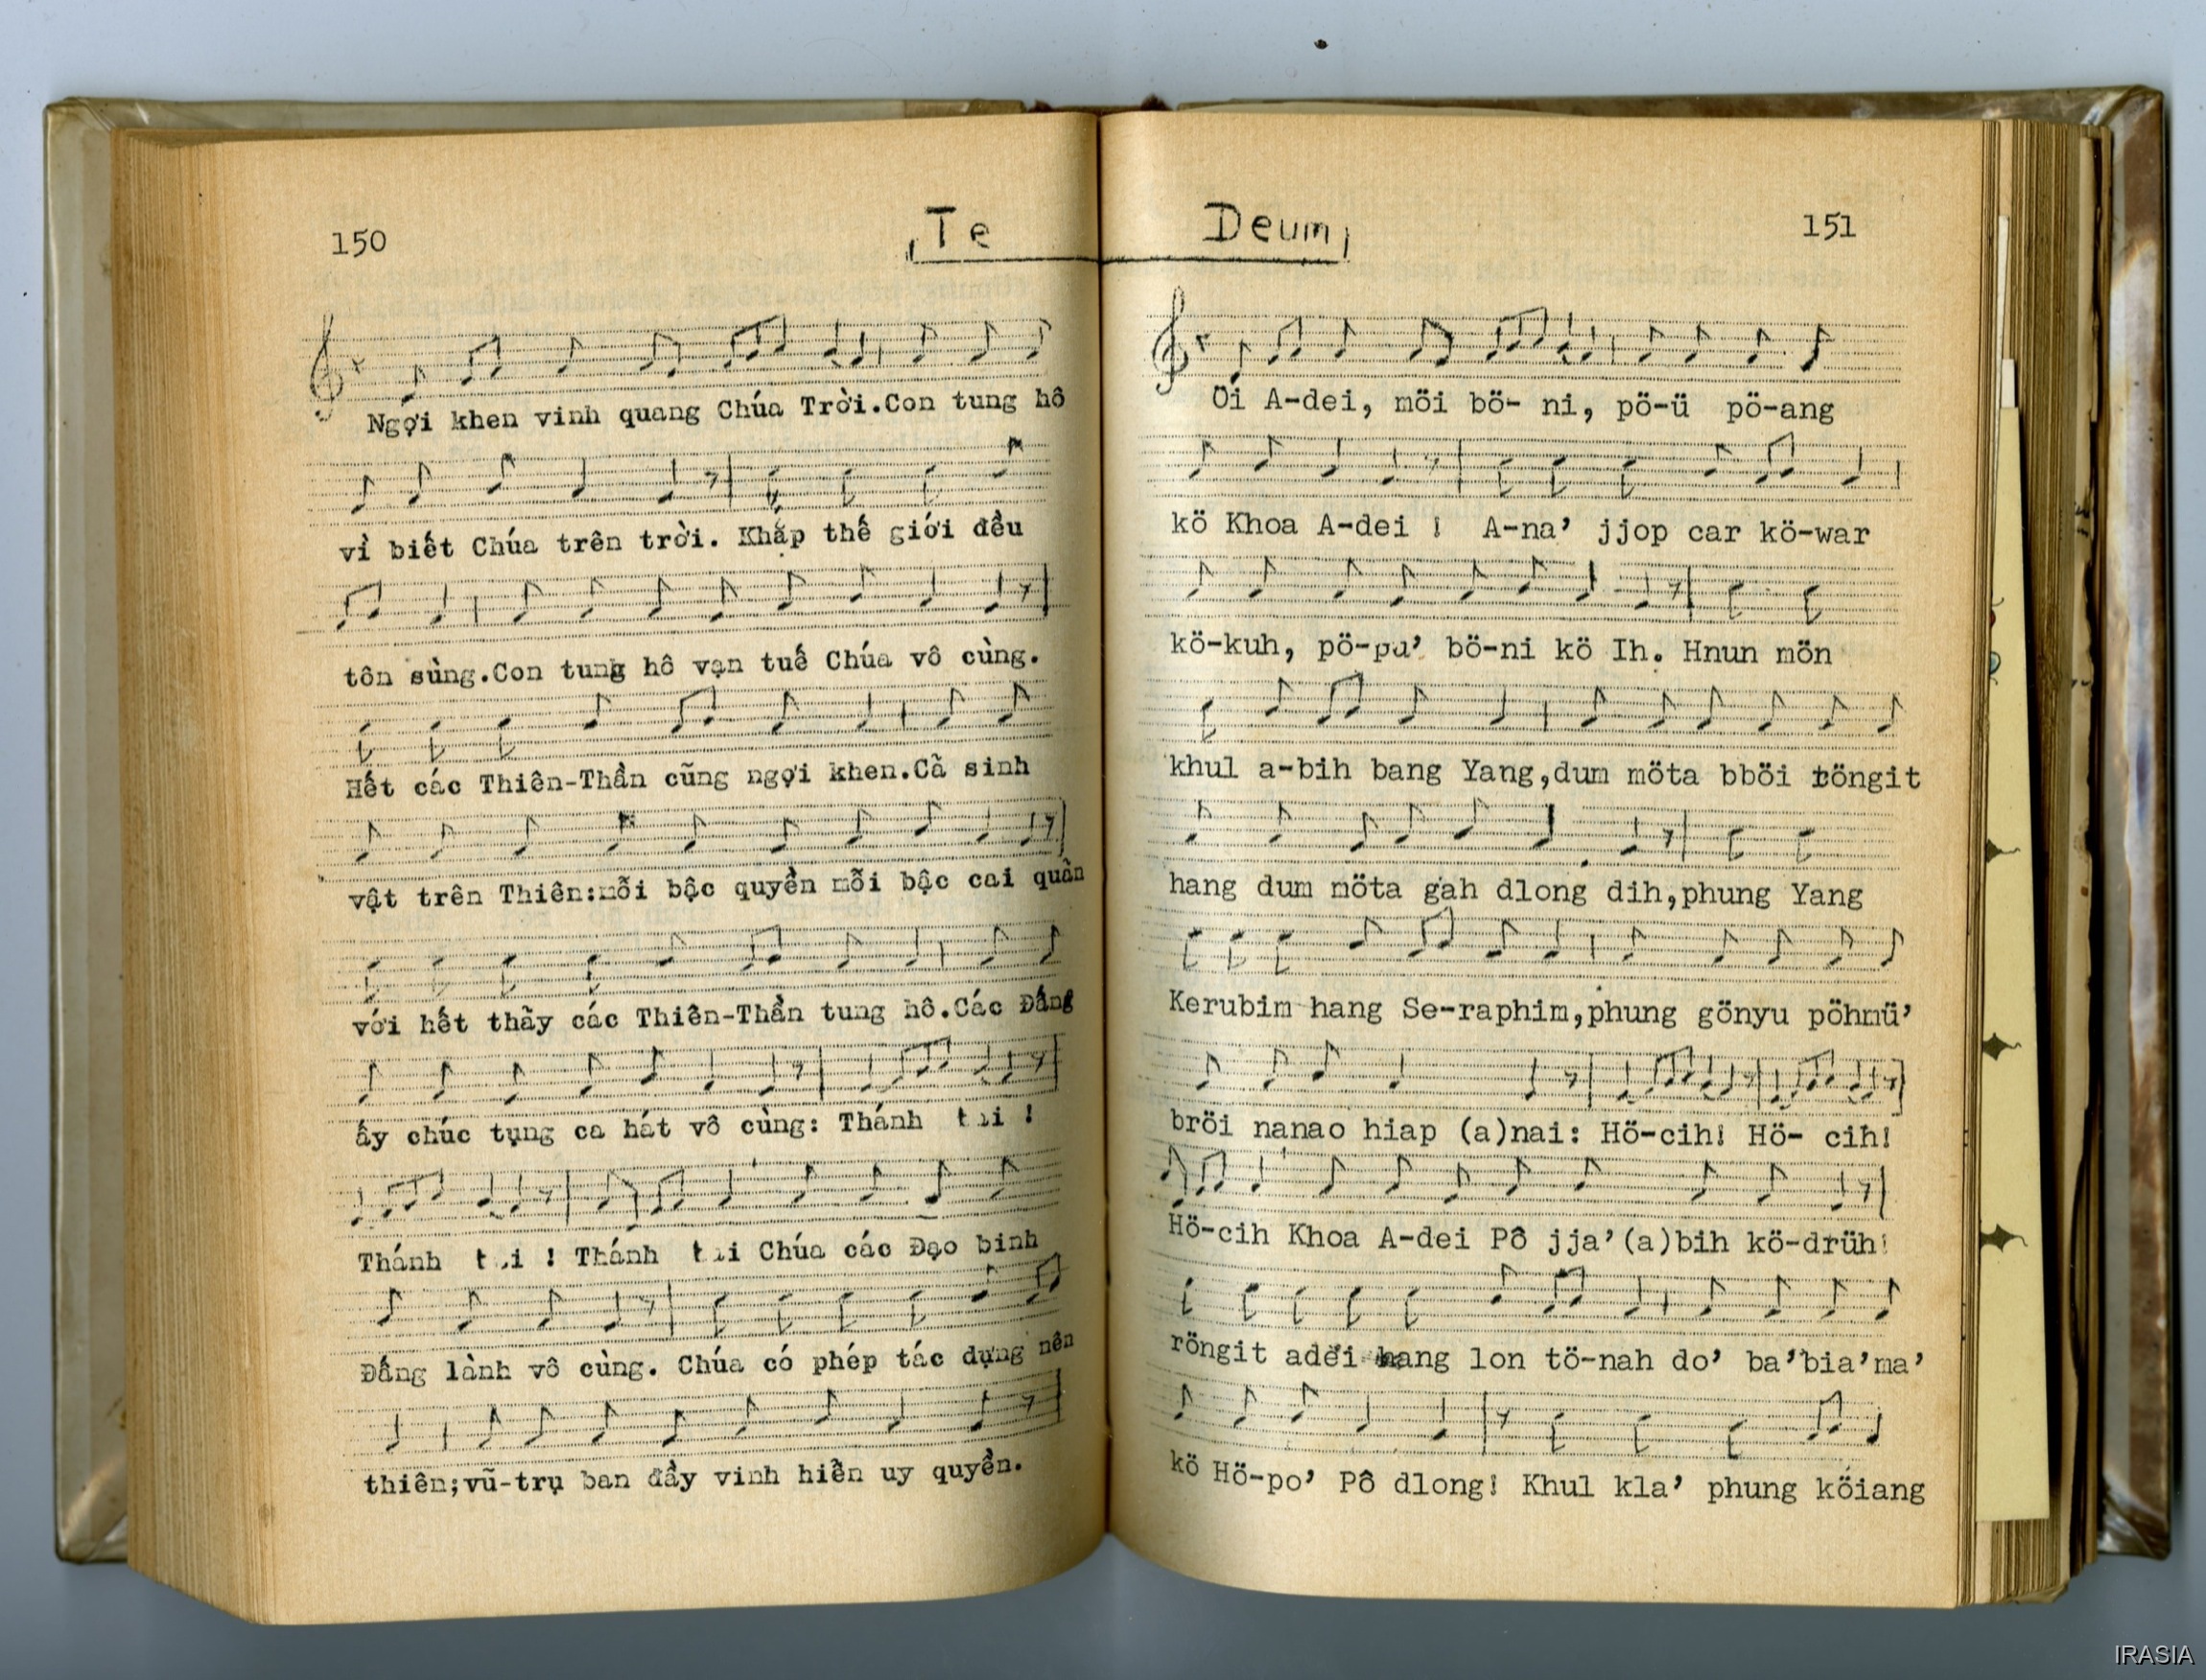 150
Te Deum
151
Ngợi khen vinh quang Chúa Trời.Con tung hô
vì biết Chúa trên trời. Khắp thế giới đều
tôn sùng.Con tung hô vạn tuế Chúa vô cùng.
Hết các Thiên-Thần cũng ngợi khen.Cả sinh
vật trên Thiên:mỗi bậc quyền mỗi bậc cai quản
với hết thảy các Thiên-Thần tung hô.Các Đấng
ấy chúc tụng ca hát vô cùng: Thánh !
Thánh ! Thánh Chúa các Đạo binh
Đấng lành vô cùng. Chúa có phép tác dựng nên
thiên;vũ-trụ ban đầy vinh hiển uy quyền.
Öi A-dei, möi bö- ni, pö-ü pö-ang
kö Khoa A-dei ! A-na’ jjop car kö-war
kö-kuh, pö-pu’ bö-ni kö Ih. Hnun mön
khul a-bih bang Yang,dum möta bböi röngit
hang dum möta gah dlong dih,phung Yang
Kerubim hang Se-raphim,phung gönyu pöhmü’
bröi nanao hiap (a)nai: Hö-cih! Hö- cih!
Hö-cih Khoa A-dei Pô jja’(a)bih kö-drüh!
röngit adei hang lon tö-nah do’ ba’bia’ma’
kö Hö-po’ Pô dlong! Khul kla’ phung köiang
IRASIA